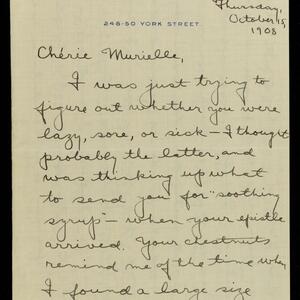 Thursday,
October 15,
1908
248-50 YORK STREET.
Chérie Murielle,
I was just trying to
figure out whether you were
lazy, sore, or sick – I thought
probably the latter, and
was thinking up what
to send you for "soothing
syrup" – when your epistle
arrived. Your chestnuts
remind me of the time when
I found a large size